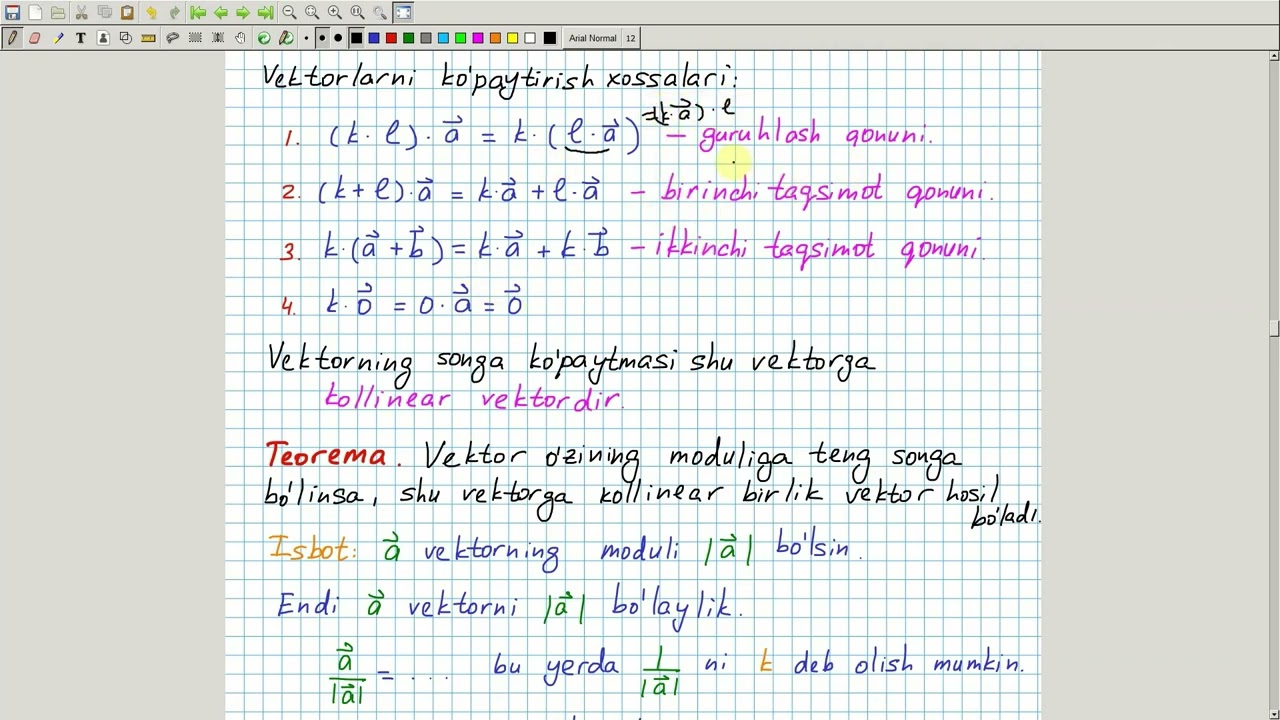 Arial Normal 12
Vektorlarni ko'paytirish xossalari:
=(k·a⃗)·ℓ
1. (k·ℓ)·a⃗ = k·(ℓ·a⃗) – guruhlash qonuni.
2. (k+ℓ)·a⃗ = k·a⃗ + ℓ·a⃗ – birinchi taqsimot qonuni.
3. k·(a⃗ + b⃗) = k·a⃗ + k·b⃗ – ikkinchi taqsimot qonuni.
4. k·0⃗ = 0·a⃗ = 0⃗
Vektorning songa ko'paytmasi shu vektorga
kollinear vektordir.
Teorema. Vektor o'zining moduliga teng songa
bo'linsa, shu vektorga kollinear birlik vektor hosil
bo'ladi.
Isbot: a⃗ vektorning moduli |a⃗| bo'lsin.
Endi a⃗ vektorni |a⃗| bo'laylik.
a⃗/|a⃗| = ... bu yerda 1/|a⃗| ni k deb olish mumkin.